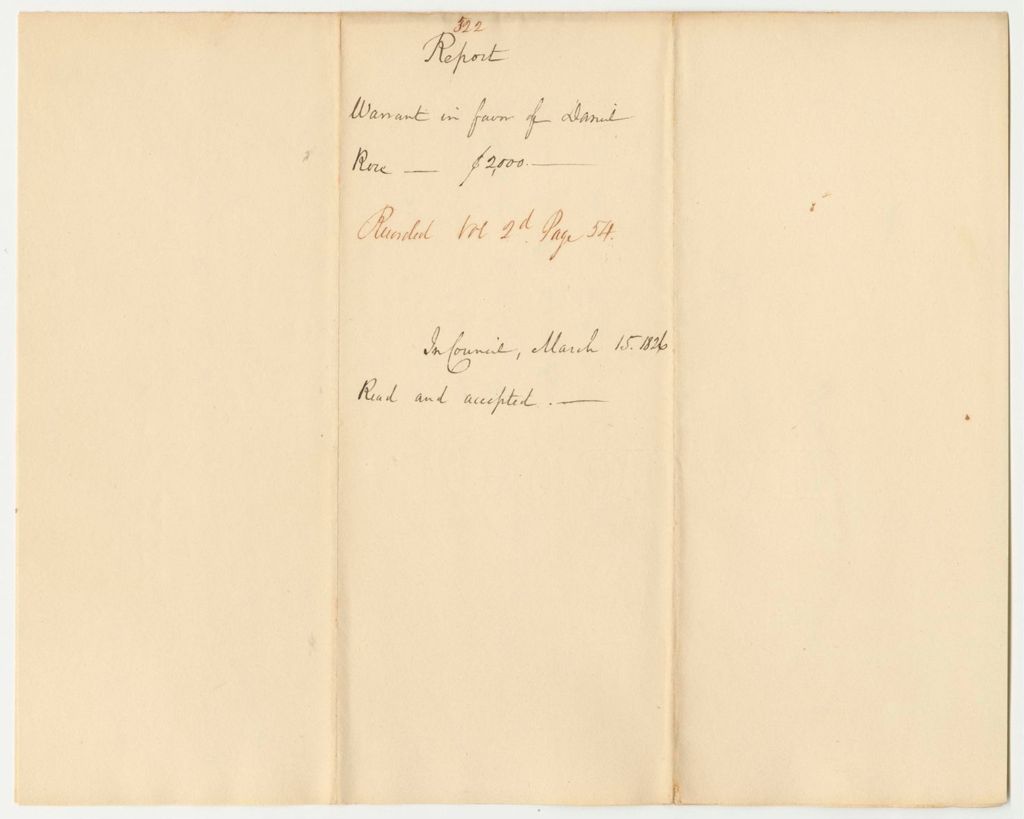 522
Report
Warrant in favor of Daniel
Rose — $2,000.—
Recorded Vol 2d. Page 54.
In Council, March 15. 1826
Read and accepted. —